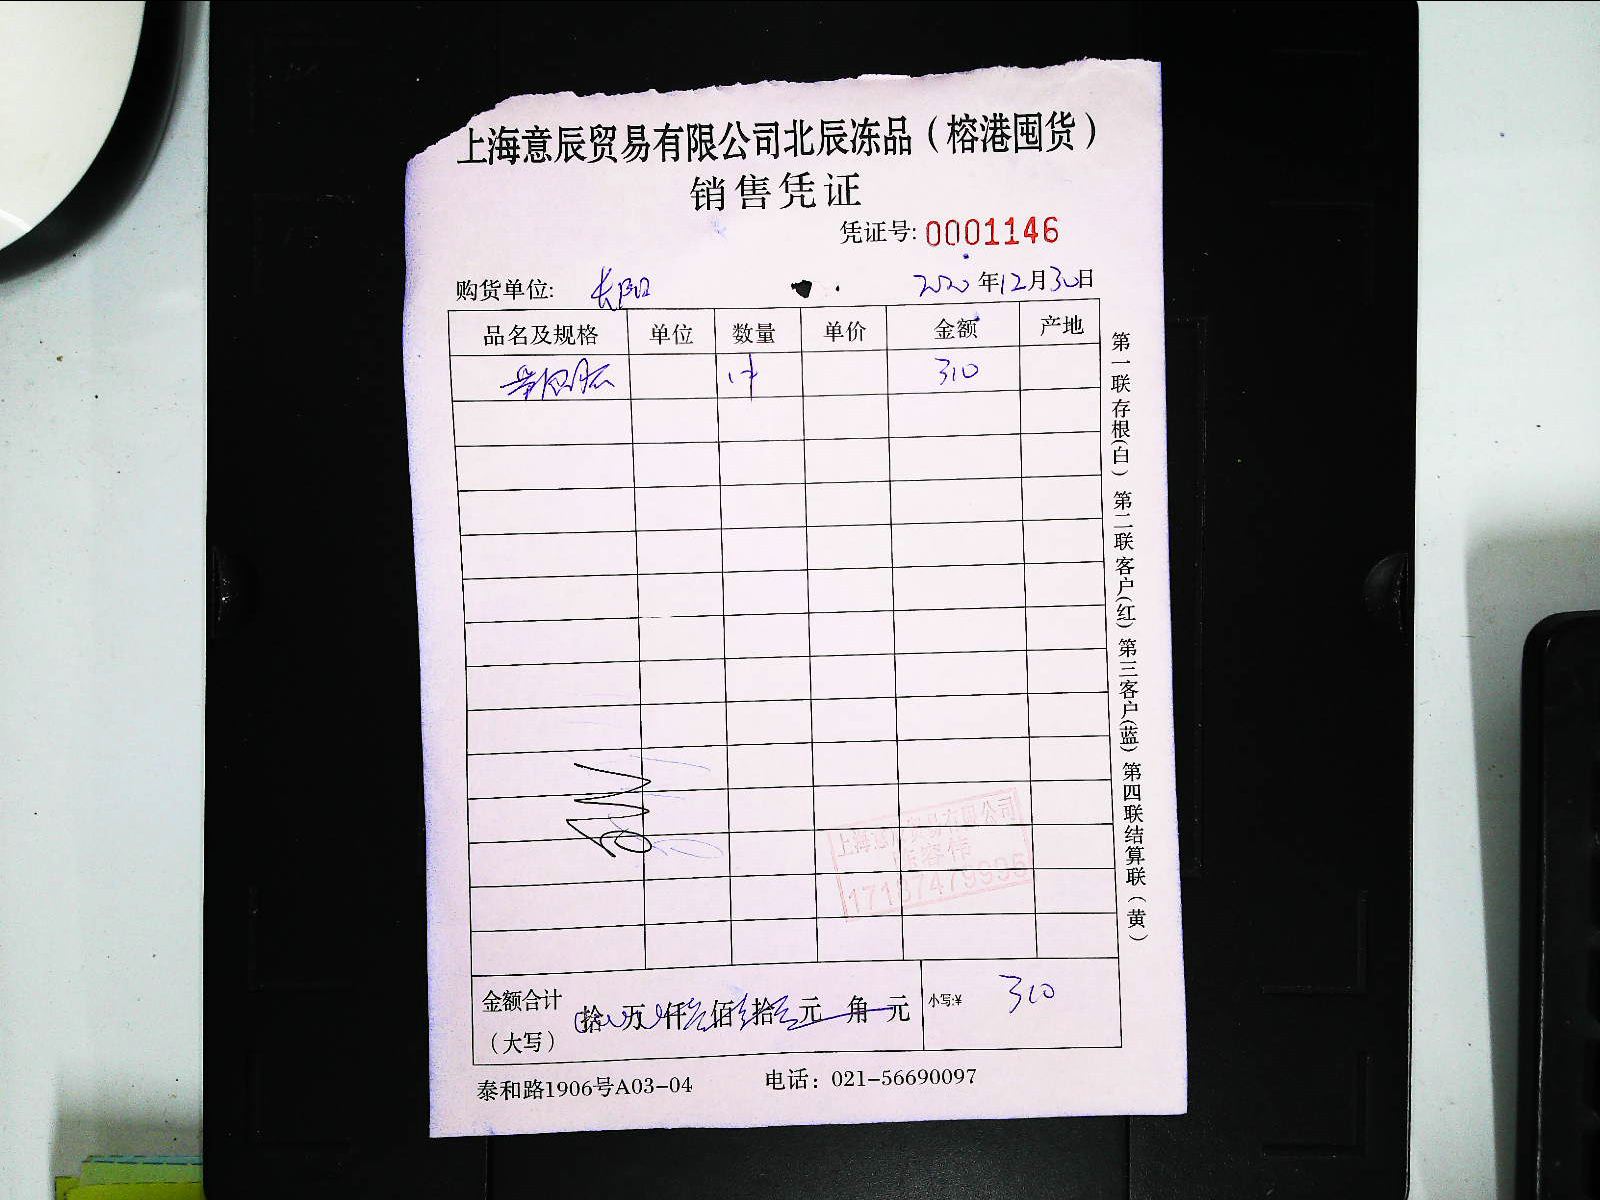 上海意辰贸易有限公司北辰冻品（榕港囤货）
销售凭证
凭证号: 0001146
购货单位: 长阳 2020年12月30日
品名及规格 单位 数量 单价 金额 产地
1件 310
第一联存根(白) 第二联客户(红) 第三客户(蓝) 第四联结算联（黄）
上海意辰贸易有限公司
金额合计（大写） 拾 万 仟 佰 拾 元 角 元 小写:¥ 310
泰和路1906号A03-04 电话：021-56690097